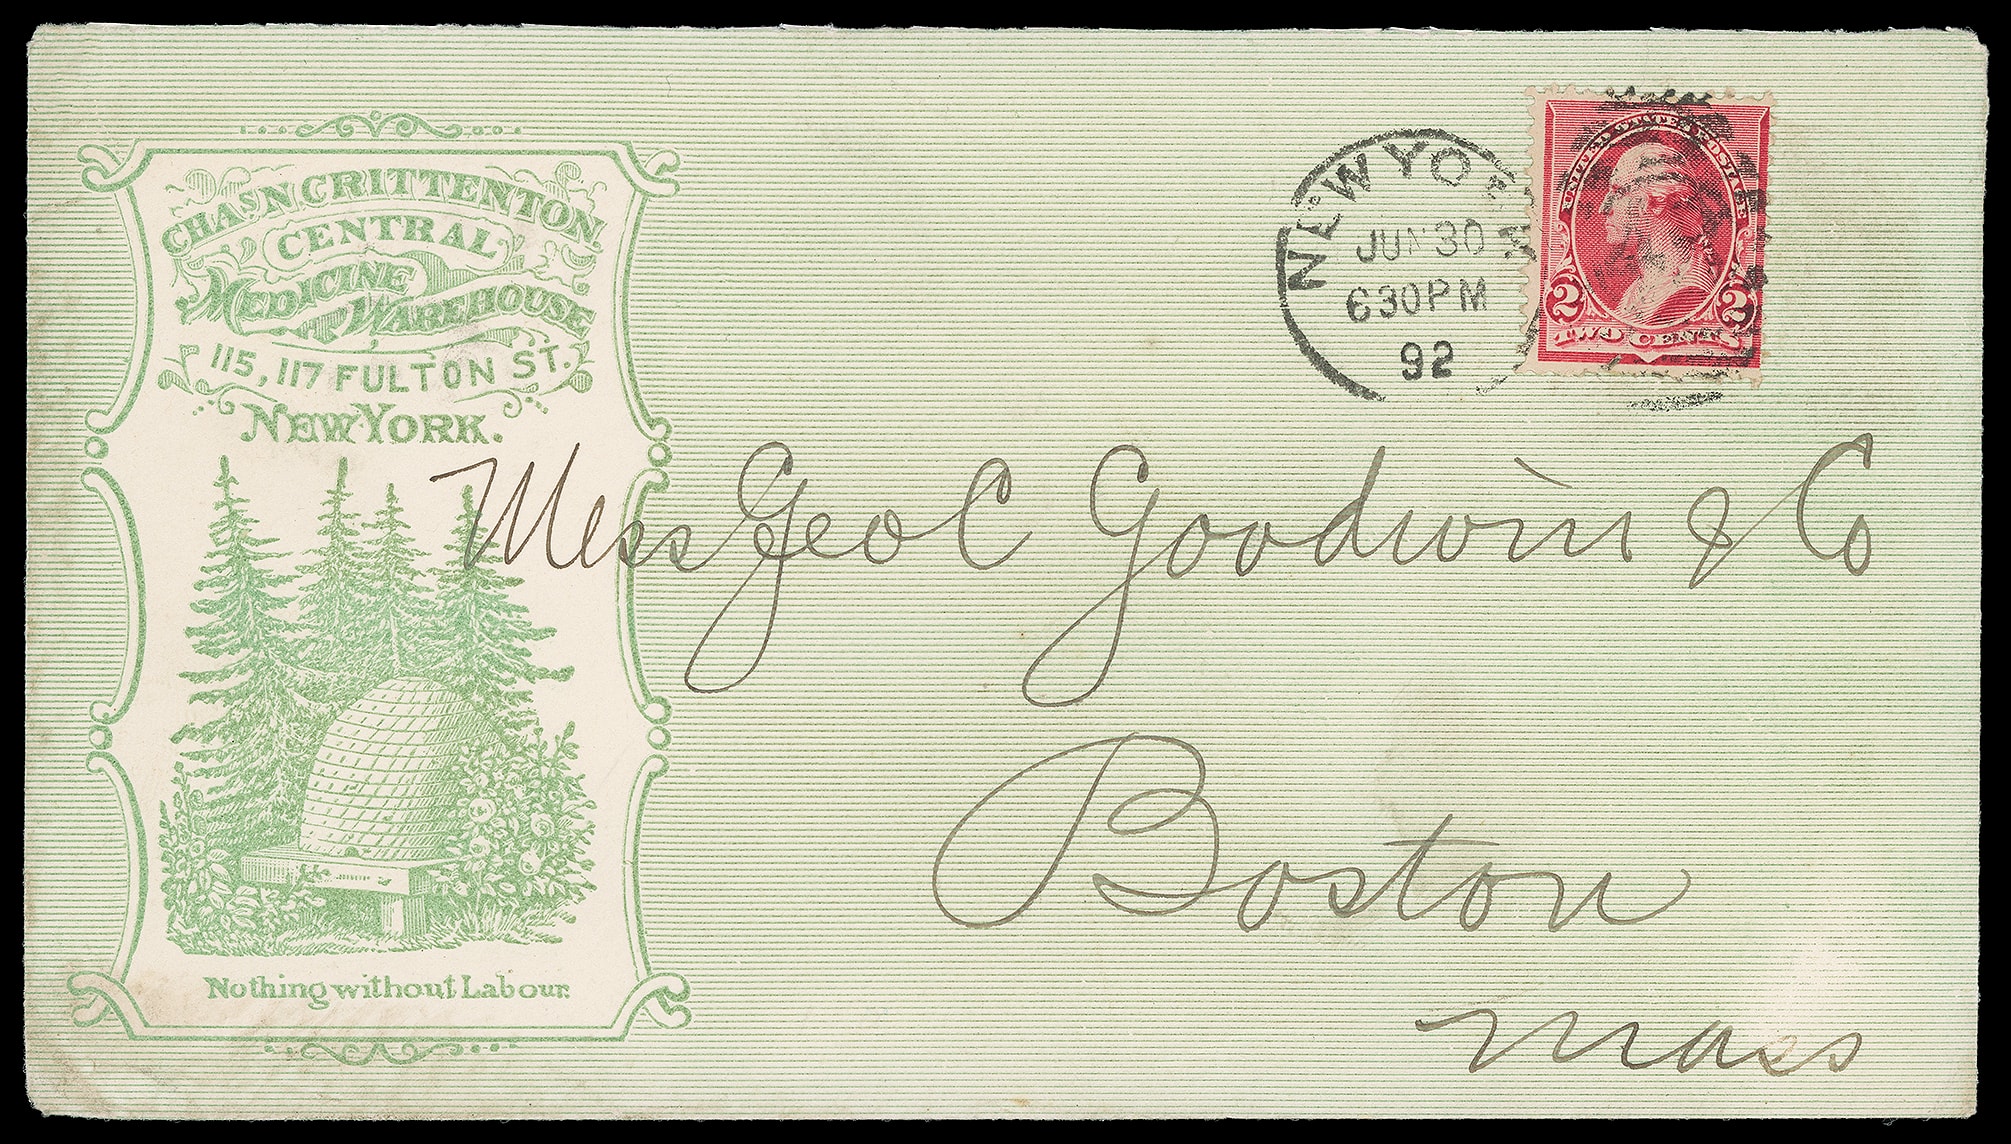 CHAS N CRITTENTON
CENTRAL
MEDICINE WAREHOUSE
115, 117 FULTON ST.
NEW YORK.
Nothing without Labour.
NEW YORK
JUN 30
630PM
92
UNITED STATES POSTAGE
2 2
TWO CENTS
Mess Geo C Goodwin & Co
Boston
Mass